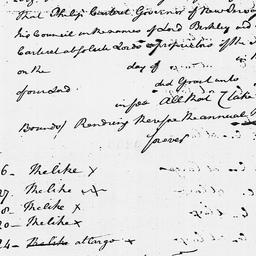 that Philip Carteret Governor of New
his Council in the names of Lord Berkley and
Carteret absolute Lords Proprietors of the
on the day of
of our Lord did Grant unto
in fee All that (take
Bounds) Rendring therefor the annual
forever
6- The like x
27. The like
8- The like x
20- The like x
24- The like at large x